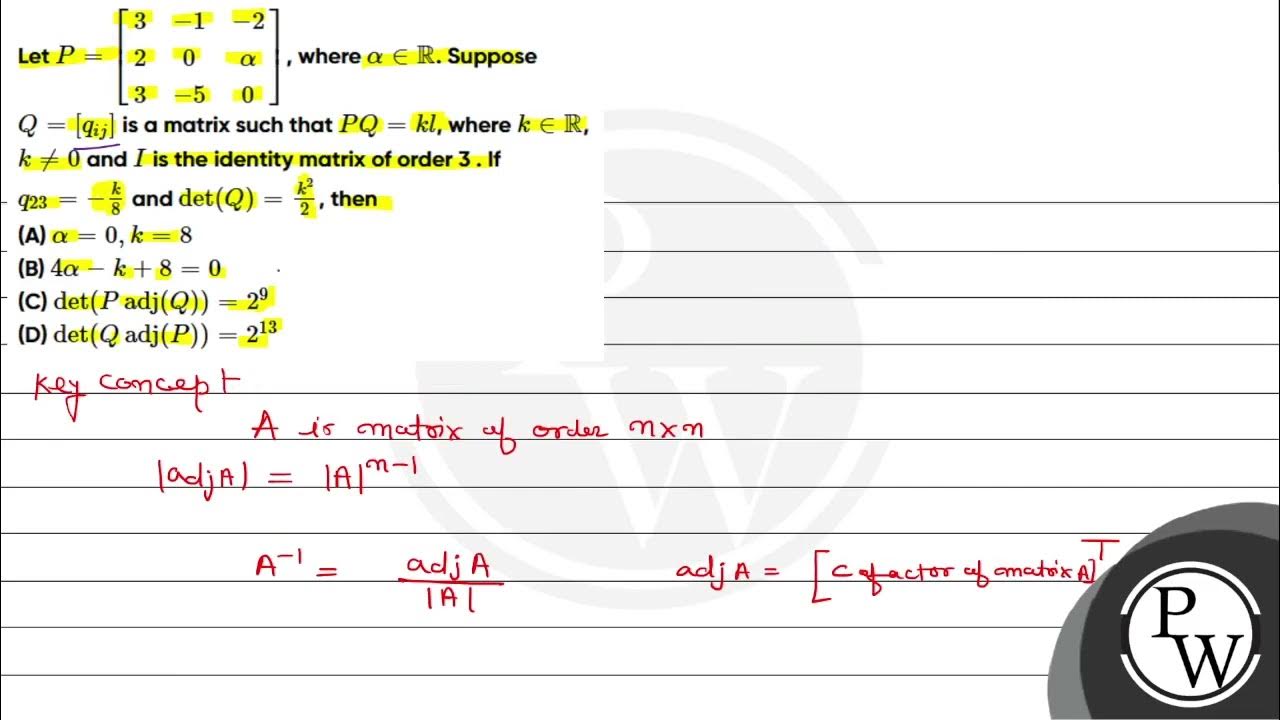 Let P = [3 −1 −2
2 0 α
3 −5 0], where α ∈ ℝ. Suppose
Q = [q_{ij}] is a matrix such that PQ = kl, where k ∈ ℝ,
k ≠ 0 and I is the identity matrix of order 3 . If
q_{23} = −k/8 and det(Q) = k²/2, then
(A) α = 0, k = 8
(B) 4α − k + 8 = 0
(C) det(P adj(Q)) = 2⁹
(D) det(Q adj(P)) = 2¹³
Key concept
A is matrix of order n×n
|adjA| = |A|ⁿ⁻¹
A⁻¹ = adj A / |A| adj A = [Cofactor of matrix A]ᵀ
P
W
P
W